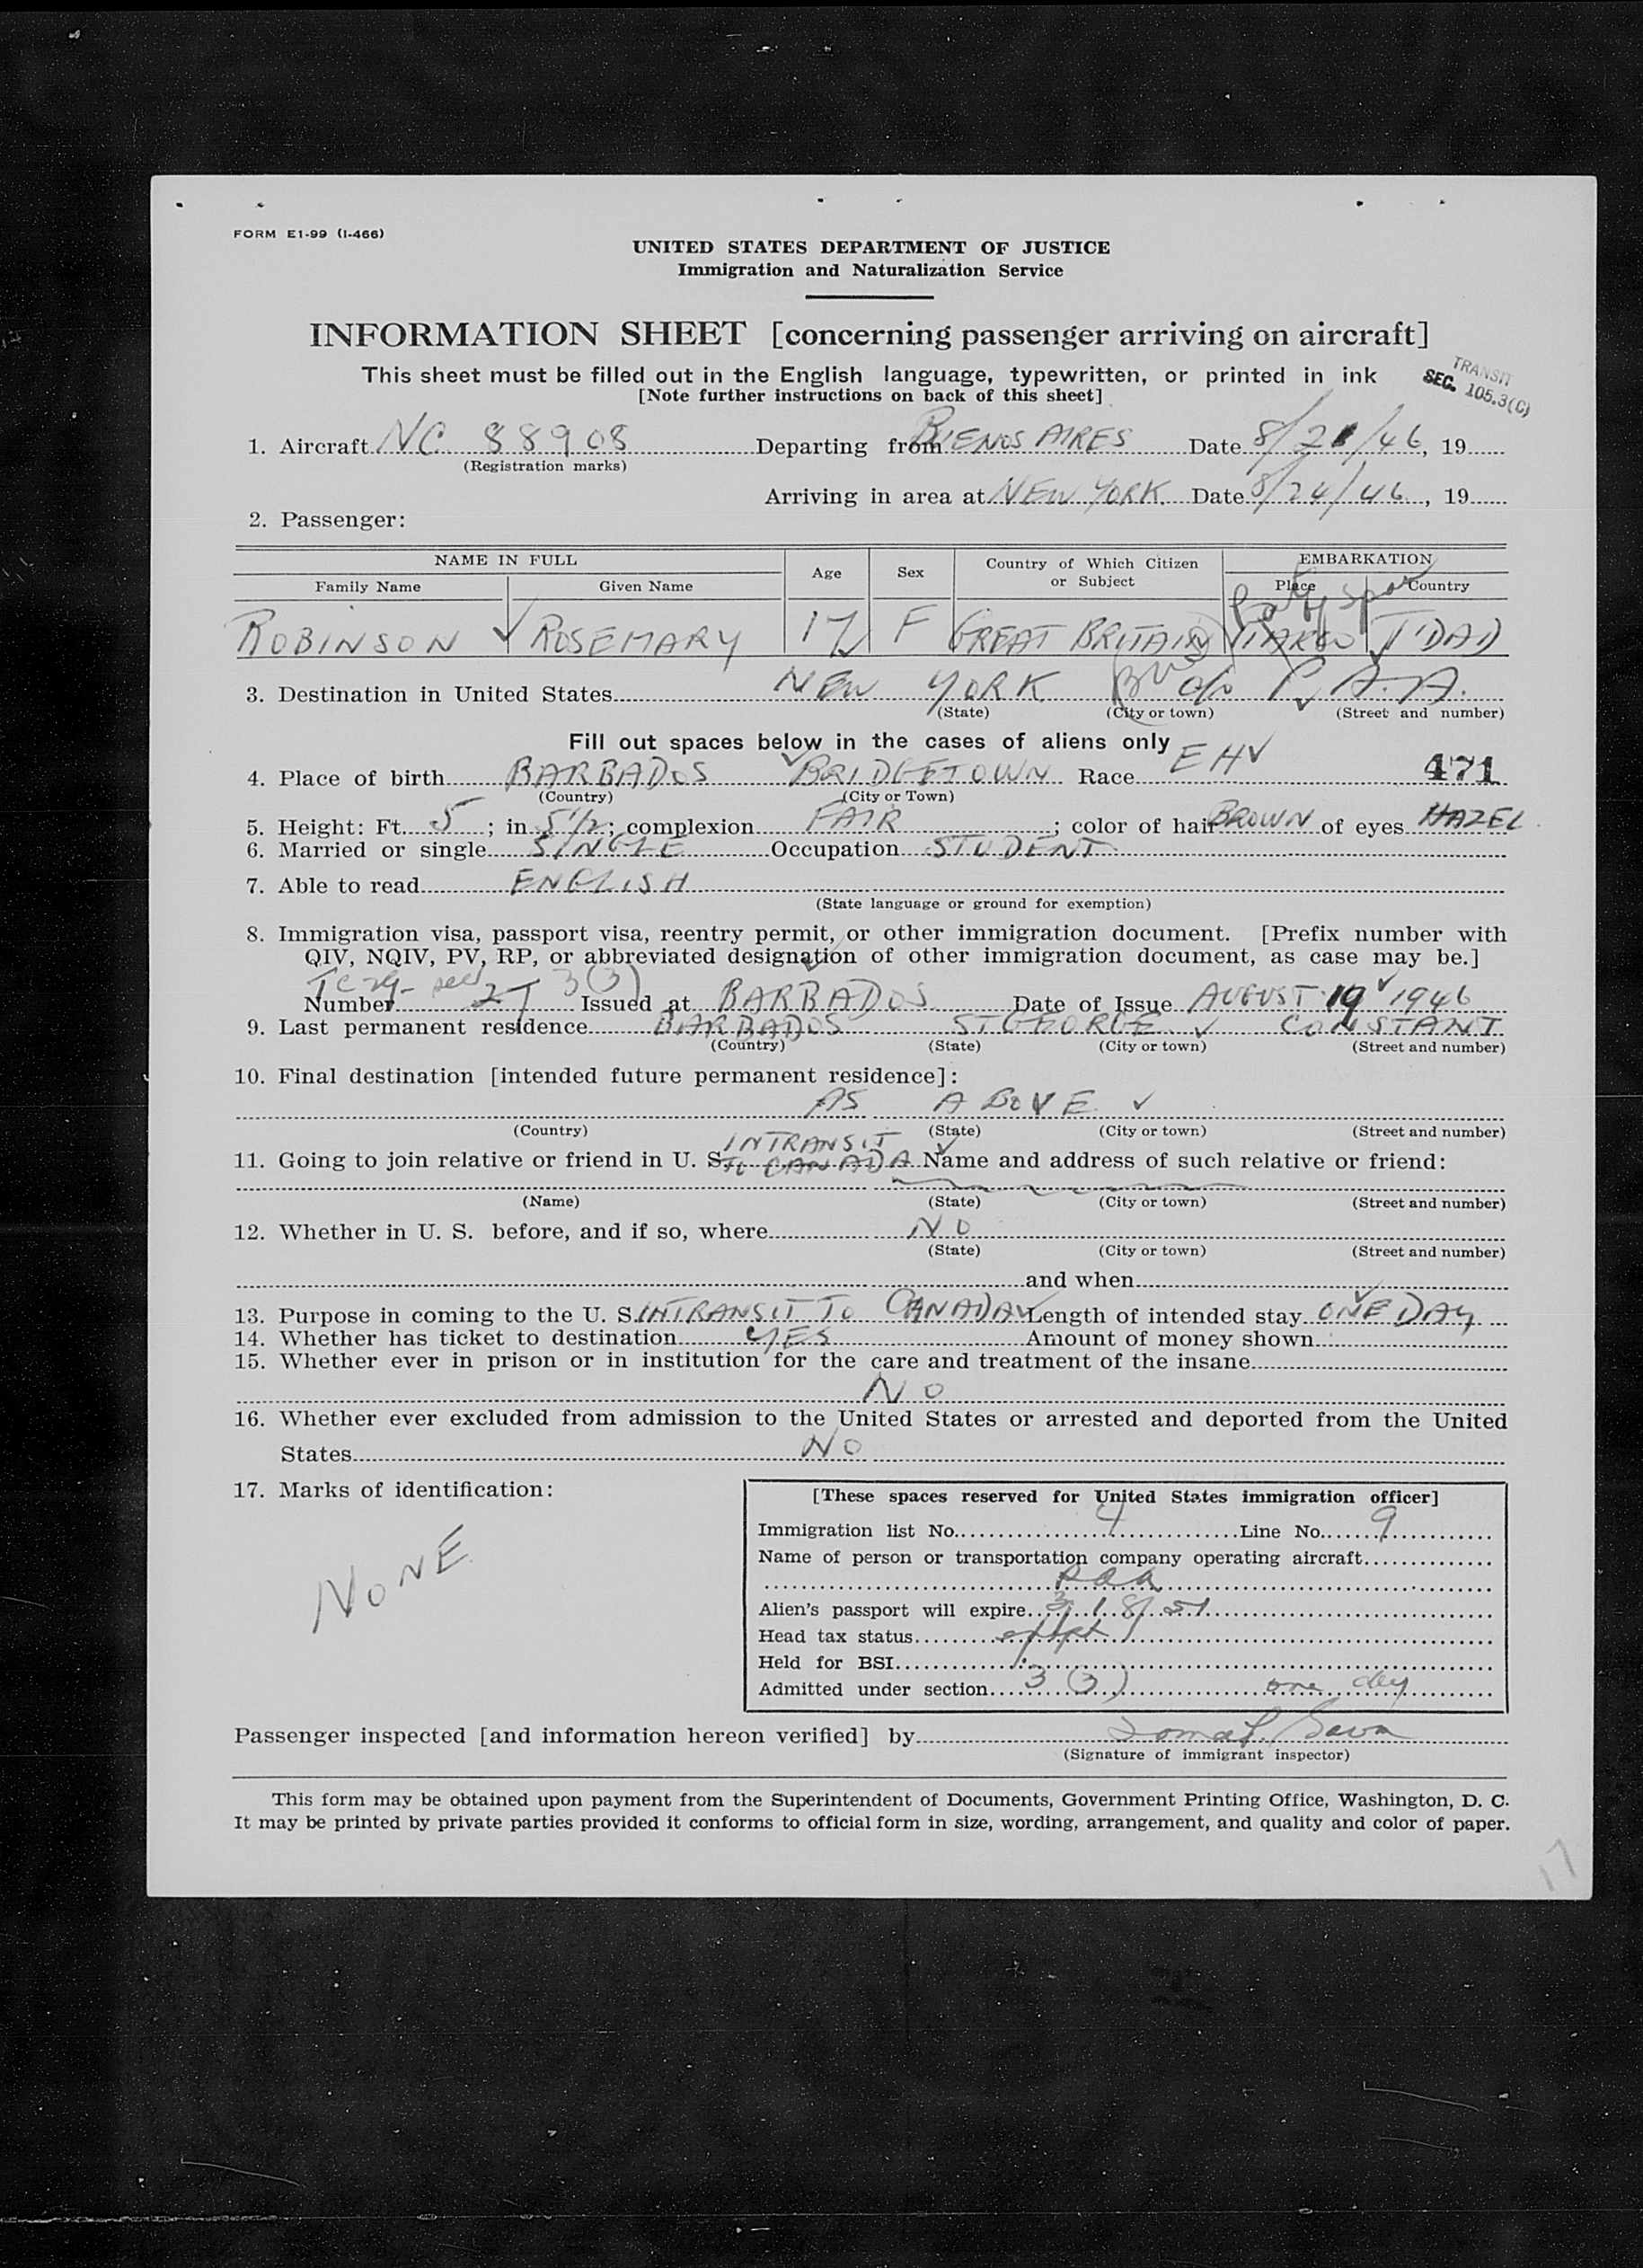 FORM E1-99 (I-466)
UNITED STATES DEPARTMENT OF JUSTICE
Immigration and Naturalization Service
INFORMATION SHEET [concerning passenger arriving on aircraft]
This sheet must be filled out in the English language, typewritten, or printed in ink
[Note further instructions on back of this sheet]
TRANSIT
SEC. 105.3(C)
1. Aircraft NC 88908 Departing from BUENOS AIRES Date 8/21/46, 19
(Registration marks)
Arriving in area at NEW YORK Date 8/24/46, 19
2. Passenger:
NAME IN FULL Age Sex Country of Which Citizen or Subject EMBARKATION
Family Name Given Name Place Country
Port of Spain
ROBINSON ROSEMARY 17 F GREAT BRITAIN T'DAD
3. Destination in United States NEW YORK c/o P.A.A.
(State) (City or town) (Street and number)
Fill out spaces below in the cases of aliens only
4. Place of birth BARBADOS BRIDGETOWN Race EH 471
(Country) (City or Town)
5. Height: Ft. 5; in 5 1/2; complexion FAIR; color of hair BROWN of eyes HAZEL
6. Married or single SINGLE Occupation STUDENT
7. Able to read ENGLISH
(State language or ground for exemption)
8. Immigration visa, passport visa, reentry permit, or other immigration document. [Prefix number with
QIV, NQIV, PV, RP, or abbreviated designation of other immigration document, as case may be.]
3(3)
Number Issued at BARBADOS Date of Issue AUGUST 19 1946
9. Last permanent residence BARBADOS ST GEORGE CONSTANT
(Country) (State) (City or town) (Street and number)
10. Final destination [intended future permanent residence]:
AS ABOVE
(Country) (State) (City or town) (Street and number)
INTRANSIT
11. Going to join relative or friend in U. S. TO CANADA Name and address of such relative or friend:
(Name) (State) (City or town) (Street and number)
12. Whether in U. S. before, and if so, where NO
(State) (City or town) (Street and number)
and when
13. Purpose in coming to the U. S. INTRANSIT TO CANADA Length of intended stay ONE DAY
14. Whether has ticket to destination YES Amount of money shown
15. Whether ever in prison or in institution for the care and treatment of the insane
NO
16. Whether ever excluded from admission to the United States or arrested and deported from the United
States NO
17. Marks of identification:
NONE
[These spaces reserved for United States immigration officer]
Immigration list No. 4 Line No. 9
Name of person or transportation company operating aircraft
PAA
Alien's passport will expire 3/18/51
Head tax status
Held for BSI
Admitted under section 3(3) one day
Passenger inspected [and information hereon verified] by
(Signature of immigrant inspector)
This form may be obtained upon payment from the Superintendent of Documents, Government Printing Office, Washington, D. C.
It may be printed by private parties provided it conforms to official form in size, wording, arrangement, and quality and color of paper.
17